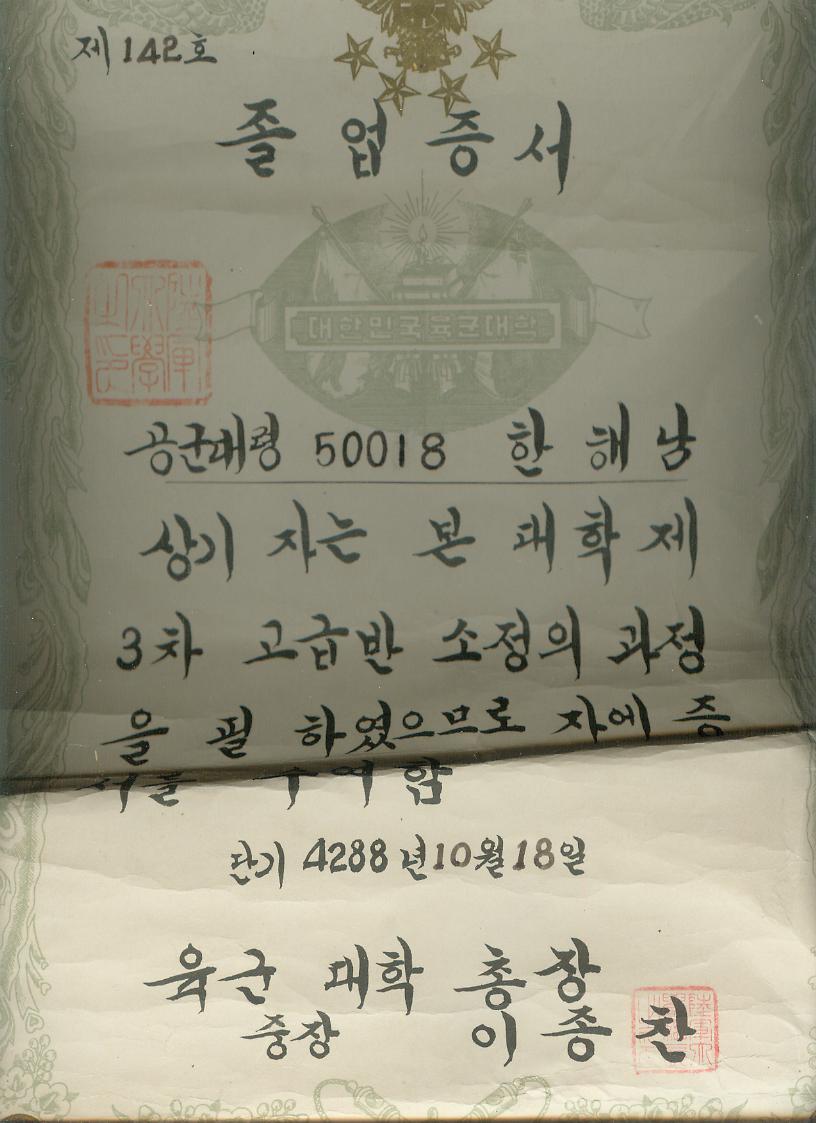 제 142호
졸업증서
대한민국육군대학
陸軍大學之印
공군대령 50018 한해남
상기 자는 본 대학 제
3차 고급반 소정의 과정
을 필 하였으므로 자에 증
서를 수여함
단기 4288년10월18일
육군 대학 총장
중장 이종찬